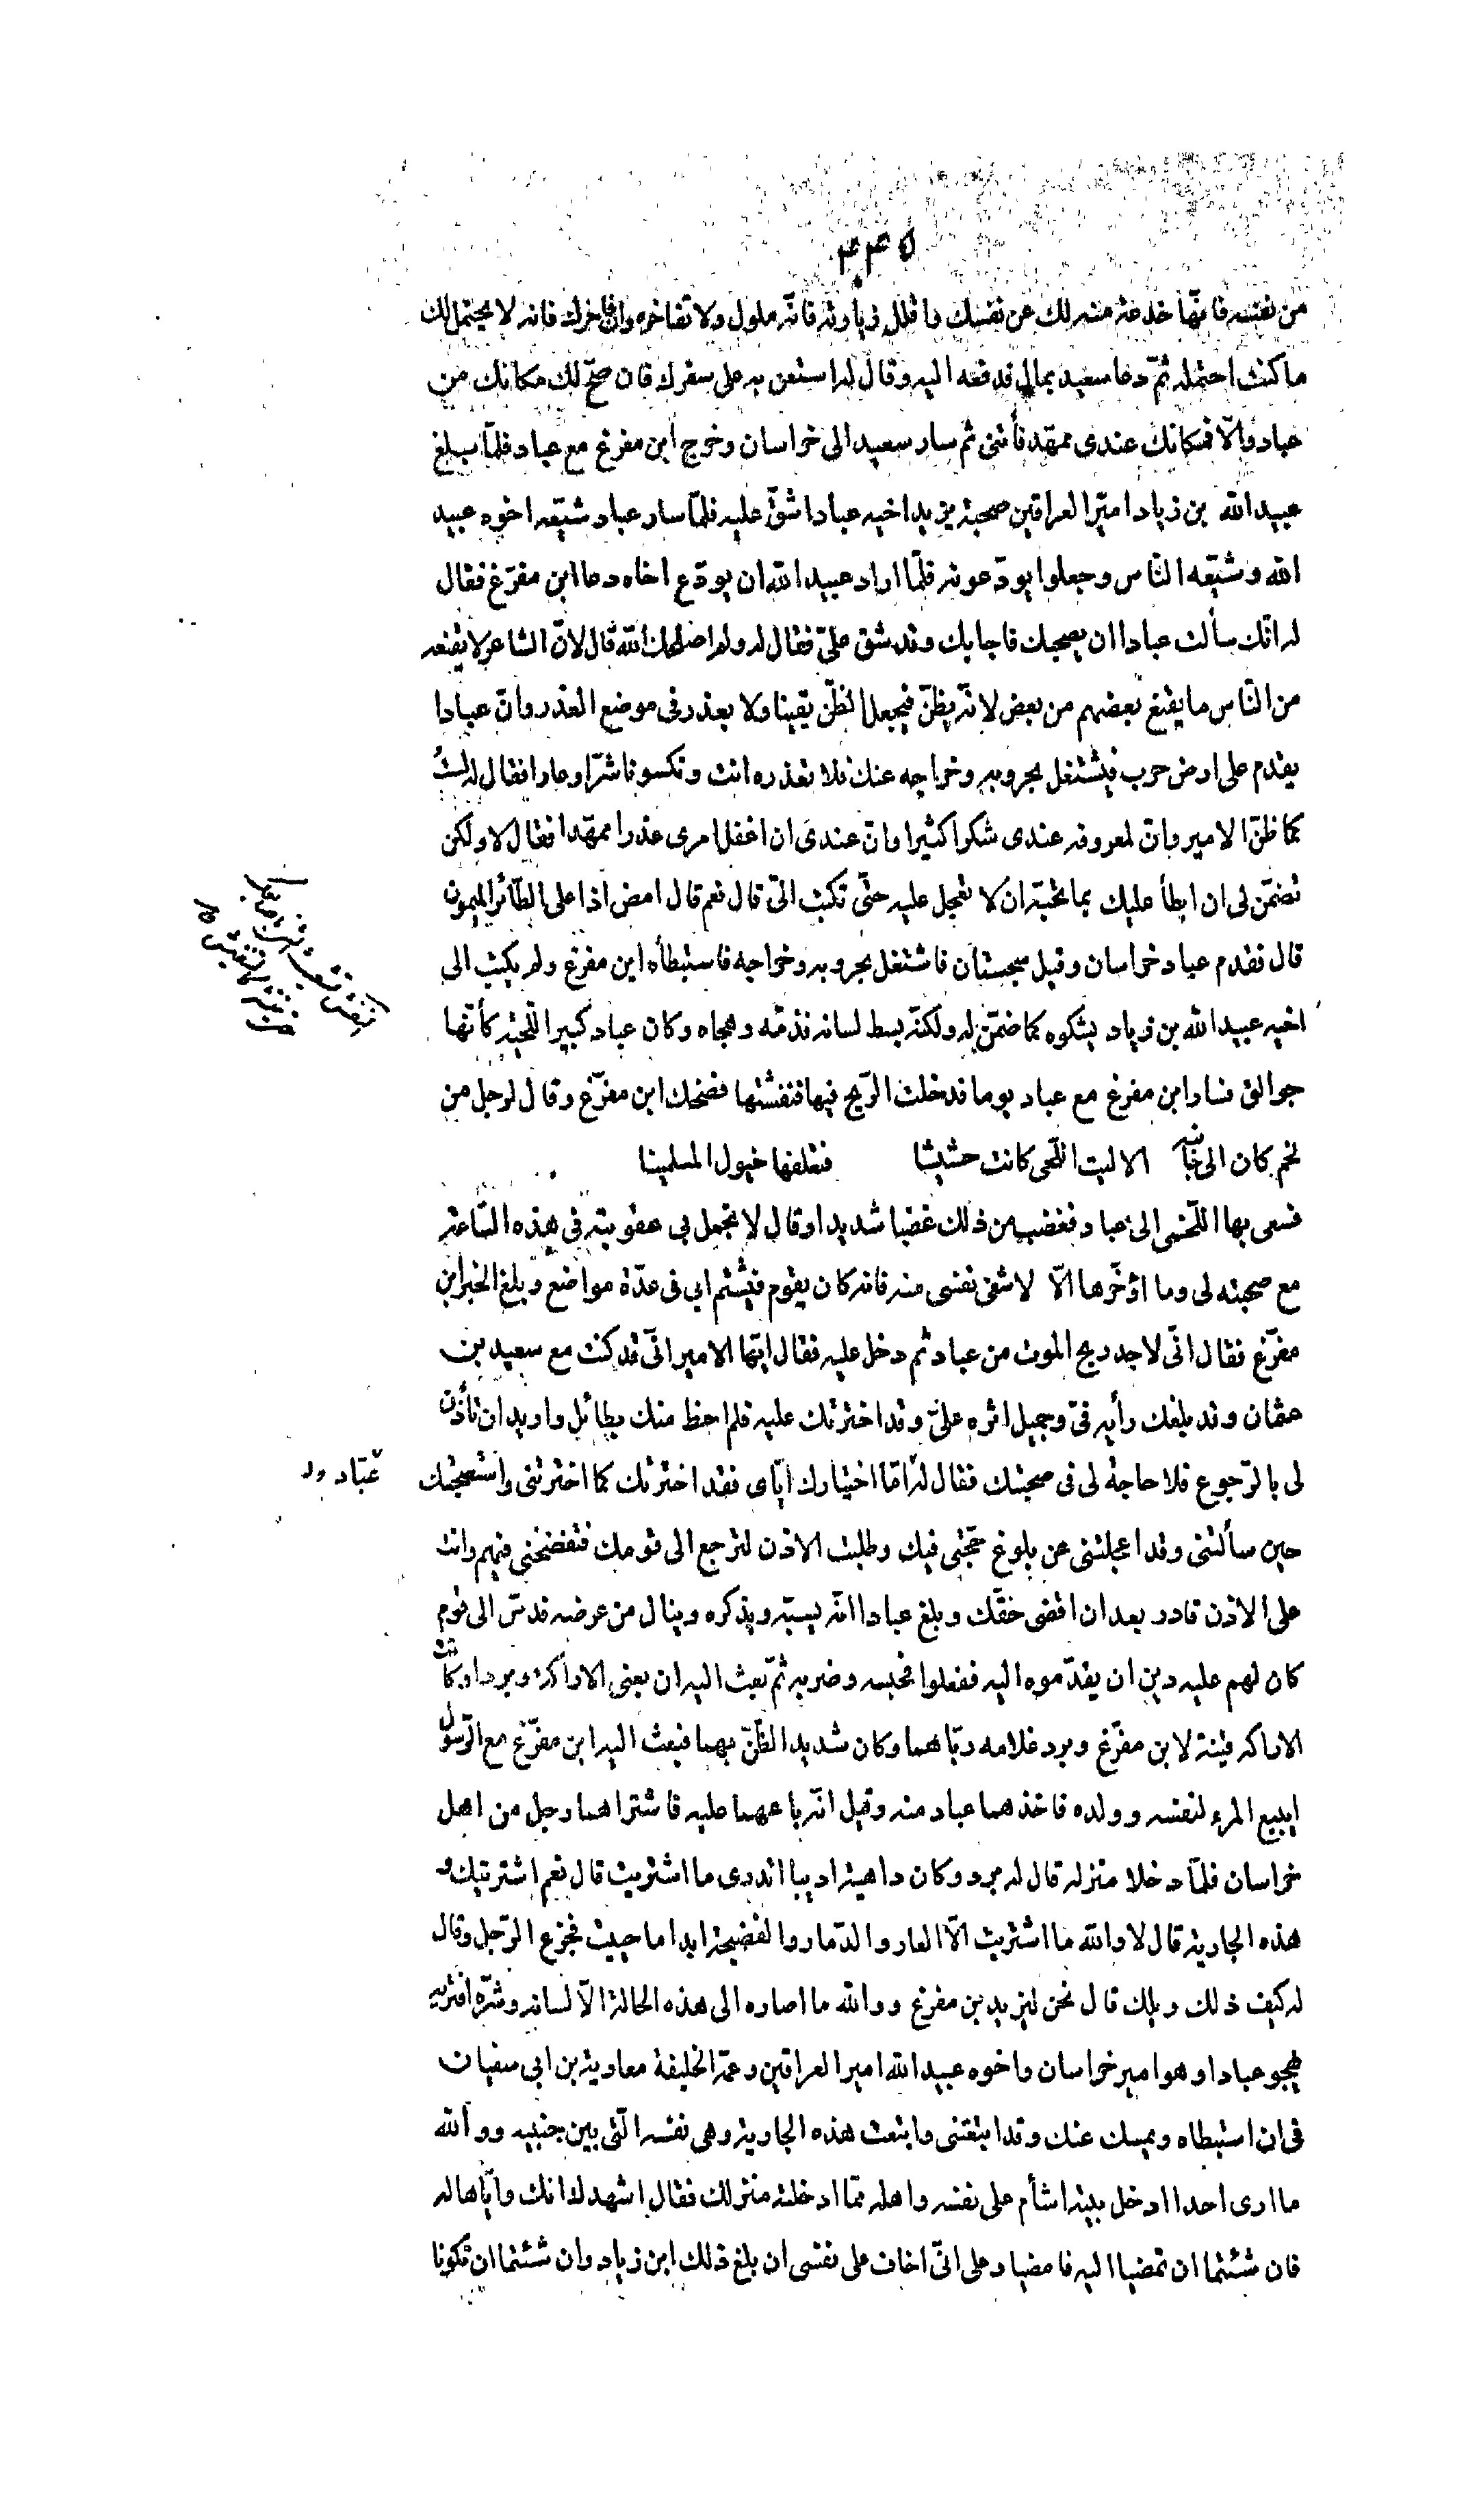 ٤٤٥
من نفسه فانّها خدعة منه لك عن نفسك واقلل زيارته فانّه ملول ولا تفاخره وان فاخرك فانه لا يحتمل لك
ما كنت احتمله ثمّ دعا سعيد بمال فدفعه اليه وقال له استعن به على سفرك فان صحّ لك مكانك من
عباد والّا فمكانك عندى ممهّد فأتنى ثم سار سعيد الى خراسان وخرج ابن مفرغ مع عباد فلمّا بلغ
عبيد الله بن زياد امير العراقين صحبة يزيد اخيه عبادا شقّ عليه فلمّا سار عباد شيّعه اخوه عبيد
الله وشيّعه النّاس وجعلوا يودّعونه فلمّا اراد عبيد الله ان يودّع اخاه دعا ابن مفرّغ فقال
له انّك سألت عبادا ان يصحبك فاجابك وقد شق علىّ فقال له ولم اصلحك الله قال لانّ الشاعر لا يقنعه
من النّاس ما يقنع بعضهم من بعض لانّه يظنّ فيجعل الظنّ يقينا ولا يعذر فى موضع العذر وانّ عبادا
يقدم على ارض حرب فيشتغل بحروبه وخراجه عنك فلا تعذره انت وتكسونا شرّا وعارا فقال له لستُ
كما ظنّ الامير وانّ لمعروفه عندى شكرا كثيرا وانّ عندى ان اغفل امرى عذرا ممهّدا فقال لا ولكن
تضمّن لى ان ابطأ عليك بما تحبّه ان لا تعجل عليه حتّى تكتب الىّ قال نعم قال امض اذا على الطّائر الميمون
قال فقدم عباد خراسان وقيل سجستان فاشتغل بحروبه وخراجه فاستبطأه ابن مفرغ ولم يكتب الى
اخيه عبيد الله بن زياد يشكوه كما ضمّن له ولكنّه بسط لسانه فذمّه وهجاه وكان عباد كبير اللّحية كأنّها
جوالق فسار ابن مفرغ مع عباد يوما فدخلت الرّيح فيها فنفشتها فضحك ابن مفرّغ وقال لرجل من
لخم كان الى جانبه الا ليت اللّحى كانت حشيشا فنعلفها خيول المسلمينا
فسعى بها اللّخمى الى عباد فغضب من ذلك غضبا شديدا وقال لا تجمل بى عقوبته فى هذه السّاعة
مع صحبته لى وما اؤخّرها الّا لاشفى نفسى منه فانه كان يقوم فيشتم ابى فى عدّة مواضع وبلغ الخبر ابن
مفرّغ فقال انّى لاجد ريح الموت من عباد ثم دخل عليه فقال ايّها الامير انّى قد كنت مع سعيد بن
عثمان وقد بلغك رأيه فىّ وجميل اثره علىّ وقد اخترتك عليه فلم احظ منك بطائل واريد ان تأذن
لى بالرّجوع فلا حاجة لى فى صحبتك فقال له امّا اختيارك ايّاى فقد اخترتك كما اخترتنى واستصحبتك
عبّاد
حين سألتنى وقد اعجلتنى عن بلوغ محبّتى فيك وطلبت الاذن لترجع الى قومك فتفضحنى فيهم وانت
على الاذن قادر بعد ان اقضى حقّك وبلغ عبادا انّه يسبّه ويذكره وينال من عرضه فدسّ الى قوم
كان لهم عليه دين ان يقدّموه اليه ففعلوا فحبسه وضربه ثمّ بعث اليه ان بعنى الاراكة وبردا وكانت
الاراكه قينة لابن مفرّغ وبرد غلامه ربّاهما وكان شديد الظنّ بهما فبعث اليه ابن مفرّغ مع الرّسول
ايبيع المرء لنفسه وولده فاخذهما عباد منه وقيل انّه باعهما عليه فاشتراهما رجل من اهل
خراسان فلمّا دخلا منزله قال له برد وكان داهية اديبا اتدرى ما اشتريت قال نعم اشتريتك و
هذه الجارية قال لا والله ما اشتريت الّا العار والدّمار والفضيحة ابدا ما حييت فجزع الرّجل وقال
له كيف ذلك ويلك قال نحن ليزيد بن مفرغ ووالله ما اصاره الى هذه الحالة الّا لسانه وشرّه افتريه
يهجو عبادا وهو امير خراسان واخوه عبيد الله امير العراقين وعمّه الخليفة معاوية بن ابى سفيان
فى ان استبطاه ويمسك عنك وقد ابتعتنى وابتعت هذه الجارية وهى نفسه الّتى بين جنبيه ووالله
ما ارى احدا ادخل بيته اشأم على نفسه واهله ممّا ادخلته منزلك فقال اشهد لك انك وايّاها له
فان شئتما ان تمضيا اليه فامضيا وعلى انّى اخاف على نفسى ان بلغ ذلك ابن زياد وان شئتما ان تكونا